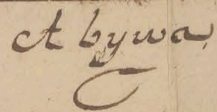 A bywa,